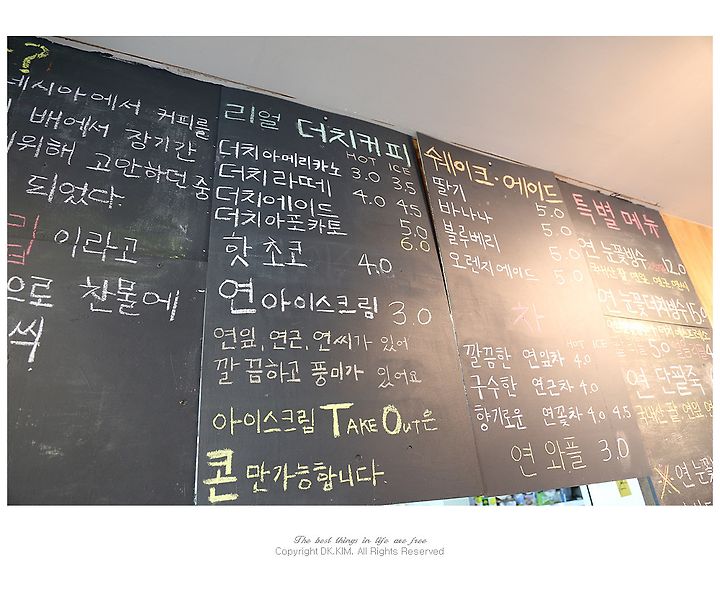 ?
네시아에서 커피를
배에서 장기간
위해 고안하던 중
되었다.
립이라고
으로 찬물에
씩
리얼 더치커피
HOT ICE
더치아메리카노 3.0 3.5
더치라떼 4.0 4.5
더치에이드 5.0
더치아포카토 6.0
핫초코 4.0
연아이스크림 3.0
연잎, 연근, 연씨가 있어
깔끔하고 풍미가 있어요
아이스크림 TAKE OUT은
콘만가능합니다.
쉐이크·에이드
딸기 5.0
바나나 5.0
블루베리 5.0
오렌지에이드 5.0
차
HOT ICE
깔끔한 연잎차 4.0
구수한 연근차 4.0
향기로운 연꽃차 4.0 4.5
연 와플 3.0
특별메뉴
연눈꽃빙수 12.0
연눈꽃더치빙수 15.0
5.0
연단팥죽
국내산 팥 연잎
※연눈꽃
The best things in life are free
Copyright DK.KIM. All Rights Reserved